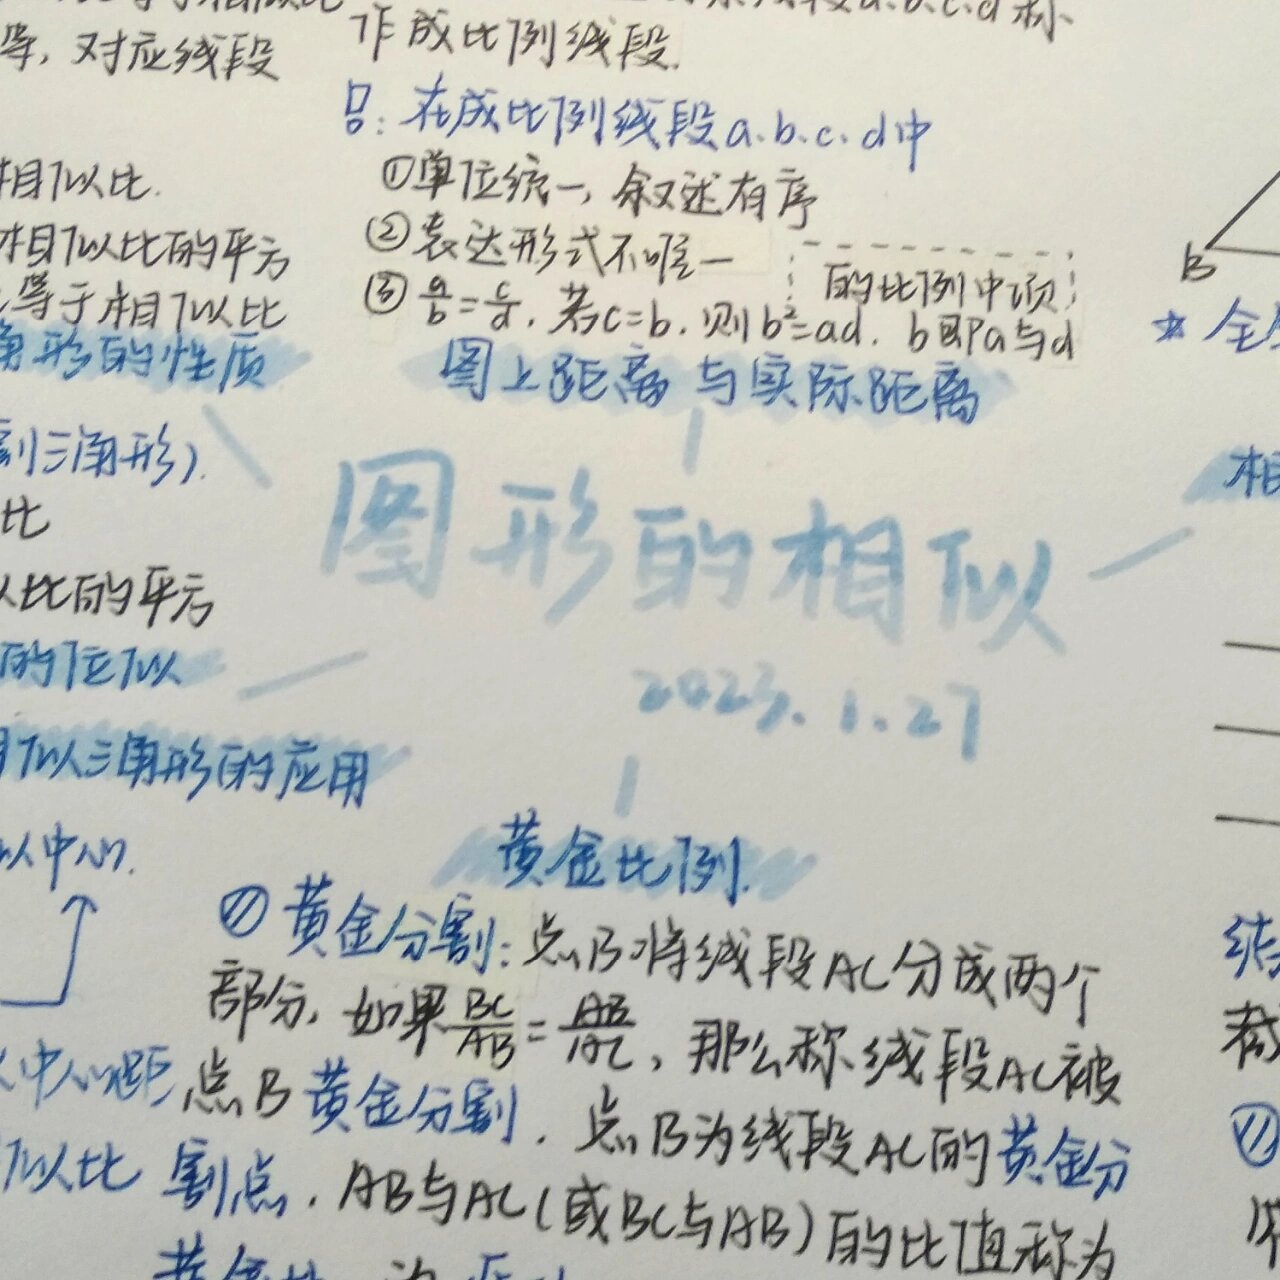 等，对应线段
作成比例线段.
吕：在成比例线段a.b.c.d中
①单位统一，叙述有序
②表达形式不唯一
③a/b=c/d，若c=b，则b²=ad，b即a与d
的比例中项
相似比.
相似比的平方
等于相似比
角形的性质
图上距离与实际距离
割三角形).
比
比的平方
的位似
似三角形的应用
似中心.
中心距
似比
图形的相似
2023.1.27
黄金比例.
黄金分割：点B将线段AC分成两个
部分，如果BC/AB=AB/AC，那么称线段AC被
点B黄金分割，点B为线段AC的黄金分
割点，AB与AC(或BC与AB)的比值称为
B
相